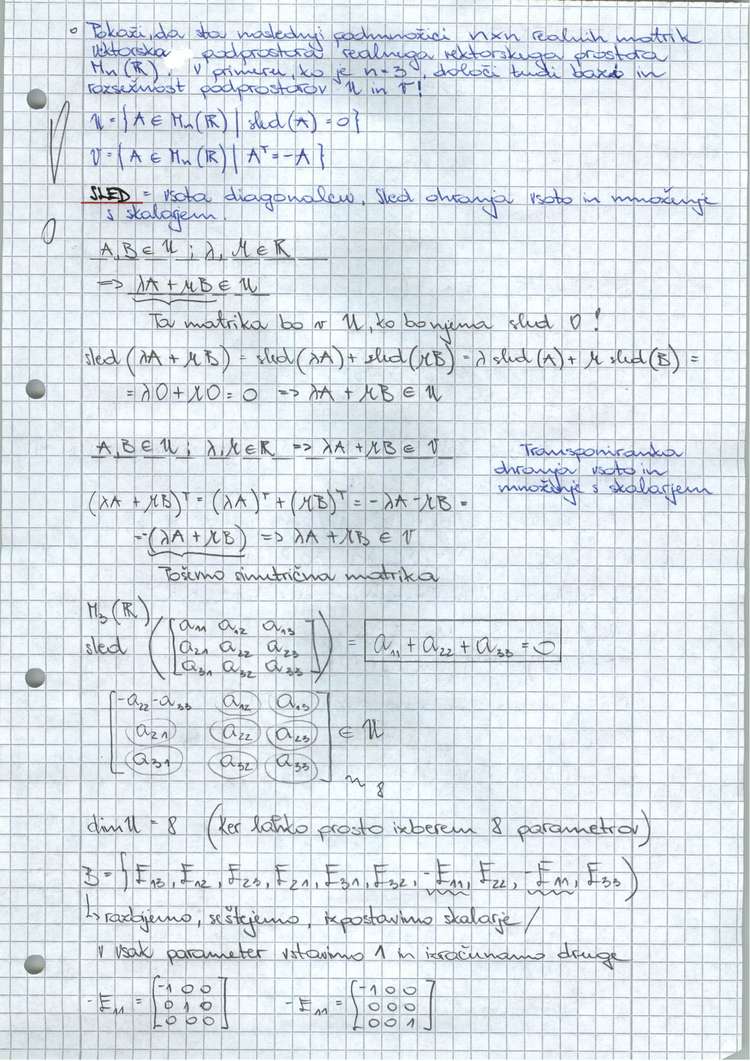 ∘ Pokaži, da sta naslednji podmnožici n×n realnih matrik
vektorska podprostora realnega vektorskega prostora
Mn(ℝ), v primeru, ko je n=3, določi tudi bazo in
razsežnost podprostorov U in V!
U = {A ∈ Mn(ℝ) | sled(A) = 0}
V = {A ∈ Mn(ℝ) | Aᵀ = -A}
SLED = vsota diagonalcev. Sled ohranja vsoto in množenje
s skalarjem.
A, B ∈ U ; λ, μ ∈ ℝ
=> λA + μB ∈ U
Ta matrika bo v U, ko bo njena sled 0!
sled(λA + μB) = sled(λA) + sled(μB) = λ sled(A) + μ sled(B) =
= λ0 + μ0 = 0 => λA + μB ∈ U
A, B ∈ U ; λ, μ ∈ ℝ => λA + μB ∈ V
Transponiranka
ohranja vsoto in
množenje s skalarjem
(λA + μB)ᵀ = (λA)ᵀ + (μB)ᵀ = -λA - μB =
= -(λA + μB) => λA + μB ∈ V
Poševno simetrična matrika
M₃(ℝ)
sled ([a₁₁ a₁₂ a₁₃
a₂₁ a₂₂ a₂₃
a₃₁ a₃₂ a₃₃]) = a₁₁ + a₂₂ + a₃₃ = 0
[-a₂₂-a₃₃ a₁₂ a₁₃
a₂₁ a₂₂ a₂₃ ∈ U
a₃₁ a₃₂ a₃₃]
~ 8
dim U = 8 (Ker lahko prosto izberem 8 parametrov)
B = {E₁₃, E₁₂, E₂₃, E₂₁, E₃₁, E₃₂, -E₁₁, E₂₂, -E₁₁, E₃₃)
↳ razbijemo, seštejemo, izpostavimo skalarje /
v vsak parameter vstavimo 1 in izračunamo druge
-E₁₁ = [-1 0 0 -E₁₁ = [-1 0 0
0 1 0 0 0 0
0 0 0] 0 0 1]